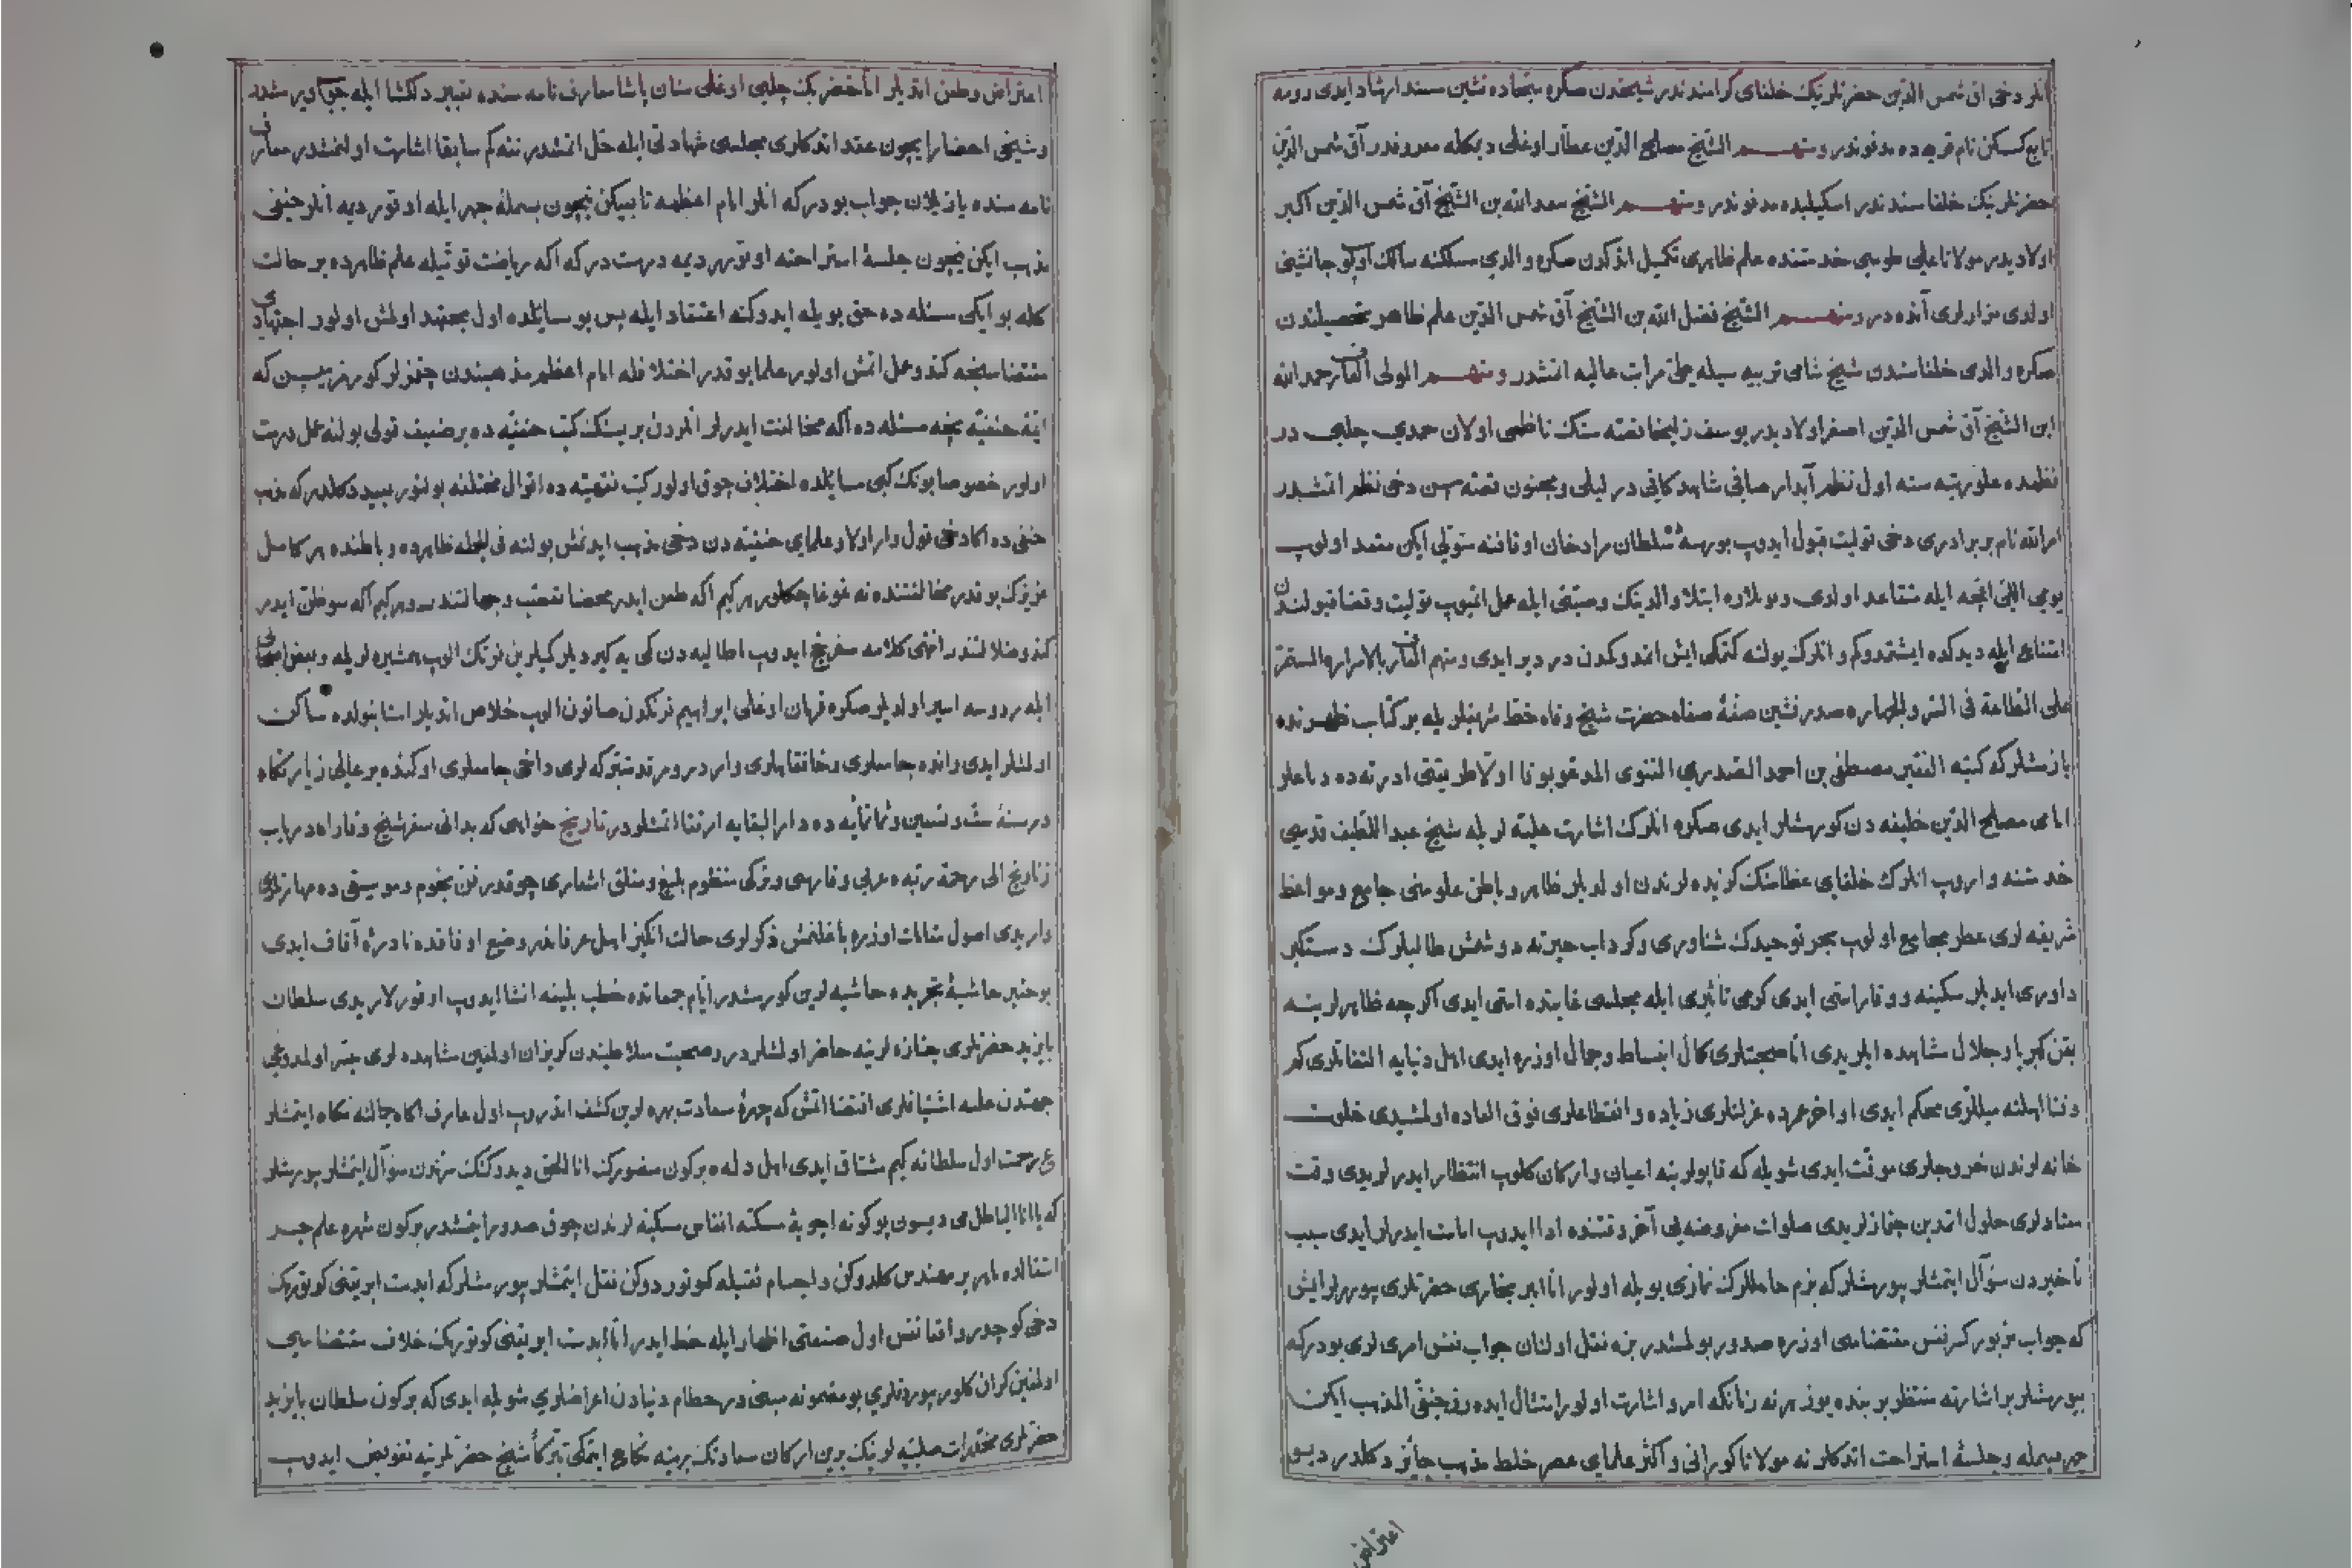 انلر دخی اق شمس الدین حضرتلرینک خلفای کرامندندر شیخدن صکره سجاده نشین مسند ارشاد ایدی رومه
تابع کسکن نام قریه ده مدفوندر ومنهم الشیخ مصلح الدین عطار اوغلی دیمکله معروفدر آق شمس الدین
حضرتلرینک خلفاسندندر اسکیلبده مدفوندر ومنهم الشیخ سعد الله بن الشیخ آق شمس الدین اکبر
اولادیدر مولانا علی طوسی خدمتنده علم ظاهری تکمیل اتدکدن صکره والدی مسلکنه سالک اولوب جانشینی
اولدی مزارلری آنده در ومنهم الشیخ فضل الله بن الشیخ آق شمس الدین علم ظاهر تحصیلندن
صکره والدی خلفاسندن شیخ شامی تربیه سیله طی مراتب عالیه اتمشدر ومنهم المولی العارف رحمه الله
ابن الشیخ آق شمس الدین اصغر اولادیدر یوسف زلیخا قصه سنک ناظمی اولان حمدی چلبی در
نظمده علو رتبه سنه اول نظم آبدار صافی شاهد کافی در لیلی ومجنون قصه سن دخی نظم اتمشدر
امرالله نام بر برادری دخی تولیت قبول ایدوب بورسه ده سلطان مرادخان اوقافنه متولی ایکن مقعد اولوب
یومی اللی اقچه ایله متقاعد اولدی وبو بلاوه ابتلا والدینک وصیتی ایله عمل اتمیوب تولیت وقضا قبولندن
امتناعی ایله دیدکده ایشتمدوکم وانلرک یولنه کتمکی ایش اتمدوکمدن در دیر ایدی ومنهم العارف بالاسرار المستقر
علی الطاعة فی السر والجهاره صدرنشین صفهٔ صفاه حضرت شیخ وفاه خط شریفلریله بر کتاب ظهرنده
یازمشلر که کتبه الفقیر مصطفی بن احمد الصدری القنوی المدعو بوفا اولا طریقتی ادرنه ده دباغلر
امامی مصلح الدین خلیفه دن کورمشلر ایدی صکره انلرک اشارت علیه لریله شیخ عبد اللطیف قدسی
خدمتنه واروب انلرک خلفای عظامنک کزیده لرندن اولدیلر ظاهر وباطن علومنی جامع ومواعظ
شریفه لری عطر مجامع اولوب بحر توحیدک شناوری وکرداب حیرته دوشمش طالبلرک دستکیر
داوری ایدیلر سکینه ووقار استی ایدی کرمی تأثیری ایله مجلسی غایتده استی ایدی اکرچه ظاهر لرینه
بقن کبریا وجلال مشاهده ایلر یدی اما صحبتلری کمال انبساط وجمال اوزره ایدی اهل دنیایه التفاتلری کم
وفنا اهلنه میللری محکم ایدی اواخر عمرده عزلتلری زیاده وانقطاعلری فوق العاده اولمشیدی خلوت
خانه لرندن خروجلری موقت ایدی شویله که قاپولرینه اعیان وارکان کلوب انتظار ایدرلریدی وقت
معتادلری حلول اتمدین چقمازلریدی صلوات مفروضه یی آخر وقتنده ادا ایدوب امامت ایدرلر ایدی سبب
تأخیردن سؤال ایتمشلر بیورمشلر که بزم حاللرک نمازی بویله اولور اما امیر بخاری حضرتلری بیوررلر ایمش
که جواب مزبور کسر نفس مقتضاسی اوزره صدور بولمشدر بزه نقل اولنان جواب نفس امری لری بودر که
بیورمشلر بر اشارته منتظر بر بنده یوز هر نه زمانکه امر واشارت اولور امتثال ایده رز حنفی المذهب ایکن
جهر بسمله وجلسهٔ استراحت اتدکلرنه مولانا کورانی واکثر علمای عصر خلط مذهب جائز دکلدر دیو
اعتراض
اعتراض وطعن اتدیلر اما خضر بک چلبی اوغلی سنان پاشا معارف نامه سنده تعبیر دلکشا ایله جواب ویرمشدر
وشیخی احضار ایچون عقد اتدکلری مجلسی شهادتی ایله حل اتمشدر نته کم سابقا اشارت اولنمشدر معارف
نامه سنده یازیلان جواب بودر که انلر امام اعظمه تابعیکن نیچون بسملهٔ جهر ایله اوقور دیمه انلر حنفی
مذهب ایکن نیچون جلسهٔ استراحته اوتورر دیمه درست در که اکه ریاضت قوتیله علم ظاهرده بر حالت
کله بو ایکی مسئله ده حق بویله ایدوکنه اعتقاد ایله پس بو مسائلده اول مجتهد اولمش اولور اجتهادی
مقتضاسنجه کندو عمل اتمش اولور علما بو قدر اختلافله امام اعظم مذهبندن چقمزلر کورمزمیسن که
ایمهٔ حنفیه نیجه مسئله ده اکه مخالفت ایدرلر انلردن برینک کتب حنفیه ده بر ضعیف قولی بولنه عمل درست
اولور خصوصا بونک کبی مسائلده اختلاف چوق اولور کتب فقهیه ده اقوال مختلفه بولنور بعید دکلدر که مذهب
حنفی ده اکا دخی قول وار اولا وعلمای حنفیه دن دخی مذهب ایدنمش بولنه فی الجمله ظاهرده وباطنده بر کامل
عزیزک بو قدر مخالفتنده نه غوغا چیقار هر کیم اکه طعن ایدر محضا تعصب وجهالتندر وهر کیم اکه سوء ظن ایدر
کندو ضلالتندر انتهی کلامه سفر حج ایدوب اطالیه دن کمی یه کیردیلر کمیلرین فرنک الوب همشیره لریله وبعض اصحابی
ایله ردوسه اسیر اولدیلر صکره قرمان اوغلی ابراهیم فرنکدن صاتون الوب خلاص اتدیلر استانبولده ساکن
اولمشلر ایدی وانده جامعلری وخانقاهلری واردر ومرقد متبرکه لری داخی جامعلری اوکنده بر عالی زیارتکاه
در سنهٔ ست وتسعین وثمانمائه ده دار البقایه ارتقا اتمشلردر تاریخ خواهی که بدانی سفر شیخ وفا راه دریاب
زتاریخ الی رحمة ربه عربی وفارسی وترکی منظوم بلیغ ومغلق اشعاری چوقدر فن نجوم وموسیقی ده مهارتلری
واریدی اصول مقامات اوزره باغلنمش ذکرلری حالت انکیز اهل عرفاندر وضع اوفاقده نادرهٔ آفاق ایدی
بو حقیر حاشیهٔ تجریده حاشیه لرین کورمشدر ایام جمعاتده خطب بلیغه انشا ایدوب اوقورلاریدی سلطان
بایزید حضرتلری جنازه لرینه حاضر اولمشلردر وصحبت سلاطیندن کریزان اولمغین مشاهده لری میسر اولمدوغی
جهتدن غلبه اشتیاقلری اقتضا اتمش که چهرهٔ سعادت بهره لرین کشف اتدروب اول عارف اکاه جمالنه نکاه ایتمشلر
ع رحمت اول سلطانه کیم مشتاق ایدی اهل دله بر کون منصورک انا الحق دیدوکنک سرندن سؤال ایتمشلر بیورمشلر
که یا انا الباطل می دیسون بو کونه اجوبهٔ مسکته انفاس سکینه لرندن چوق صدور اتمشدر بر کون شهره علم جر
اثقالده ماهر بر مهندس کلدوکن واجسام ثقیله کوتوردوکن نقل ایتمشلر بیورمشلر که ابدست ابریقنی کوتورمک
دخی کوجدر واقعا نفس اول صنعتی اظهار ایله حظ ایدر اما ابدست ابریقنی کوتورمک خلاف مقتضاسی
اولمغین کران کلور بیوردقلری بو مضمونه مبنی در حطام دنیادن اعراضلری شویله ایدی که بر کون سلطان بایزید
حضرتلری مخدرات صلبیه لرینک برین ارکان سعادتک برینه نکاح ایتمکی تبرکا شیخ حضرتلرینه تفویض ایدوب